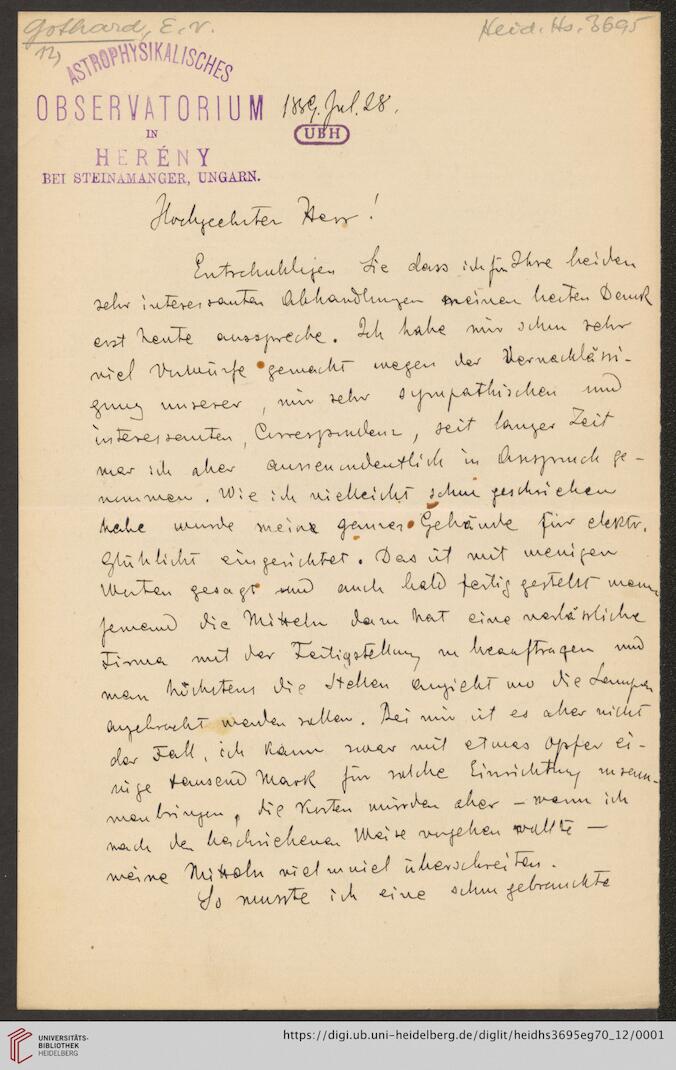 Gothard, E. v.
12)
Heid. Hs. 3695
ASTROPHYSIKALISCHES
OBSERVATORIUM
IN
HERÉNY
BEI STEINAMANGER, UNGARN.
1889. Jul. 28.
UBH
Hochgeehrter Herr!
Entschuldigen Sie dass ich für Ihre beiden
sehr interessanten Abhandlungen meinen besten Dank
erst heute ausspreche. Ich habe mir schon sehr
viel Vorwürfe gemacht wegen der Vernachlässi-
gung unserer, mir sehr sympathischen und
interessanten, Correspondenz, seit langer Zeit
war ich aber ausserordentlich in Anspruch ge-
nommen. Wie ich vielleicht schon geschrieben
habe wurde meine ganzes Gebäude für elektr.
Glühlicht eingerichtet. Das ist mit wenigen
Worten gesagt und auch bald fertig gestellt wenn
jemand die Mitteln dazu hat eine verlässliche
Firma mit der Fertigstellung zu beauftragen und
man höchstens die Stellen angiebt wo die Lampen
angebracht werden sollen. Bei mir ist es aber nicht
der Fall, ich kann zwar mit etwas Opfer ei-
nige tausend Mark für solche Einrichtung zusam-
menbringen, die Kosten würden aber – wenn ich
nach der beschriebenen Weise vorgehen wollte –
meine Mitteln viel zu viel überschreiten.
So musste ich eine schon gebrauchte
UNIVERSITÄTS-
BIBLIOTHEK
HEIDELBERG
https://digi.ub.uni-heidelberg.de/diglit/heidhs3695eg70_12/0001